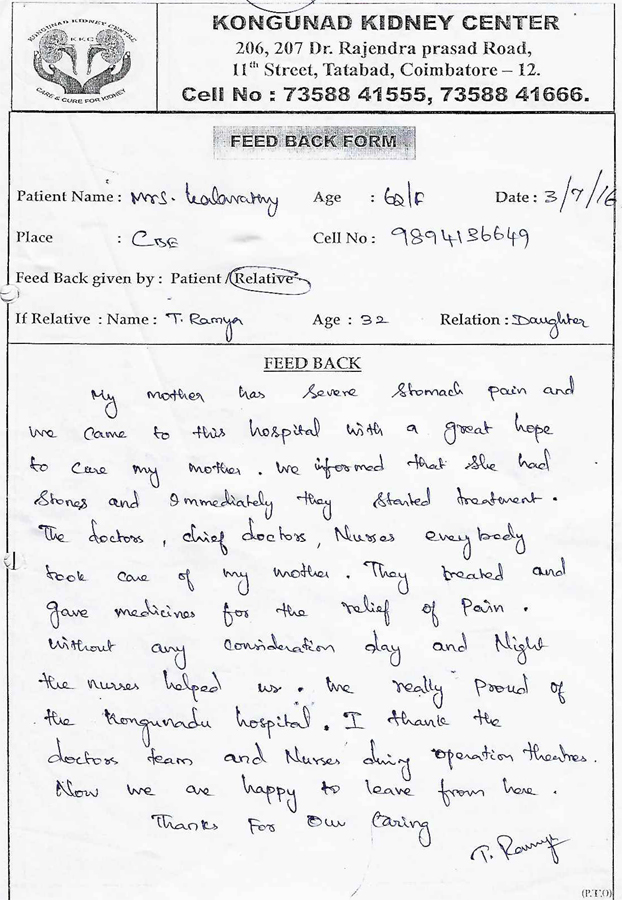 KONGUNAD KIDNEY CENTRE
KKC
CARE & CURE FOR KIDNEY
KONGUNAD KIDNEY CENTER
206, 207 Dr. Rajendra prasad Road,
11th Street, Tatabad, Coimbatore – 12.
Cell No : 73588 41555, 73588 41666.
FEED BACK FORM
Patient Name : Mrs. Kalavathy Age : 62/F Date : 3/7/16
Place : CBE Cell No : 9894136649
Feed Back given by : Patient / Relative
If Relative : Name : T. Ramya Age : 32 Relation : Daughter
FEED BACK
My mother has severe stomach pain and
we came to this hospital with a great hope
to cure my mother. We informed that she had
Stones and Immediately they started treatment.
The doctors, chief doctors, Nurses everybody
took care of my mother. They treated and
gave medicines for the relief of Pain.
Without any consideration day and Night
the nurses helped us. We really proud of
the Kongunadu hospital. I thank the
doctors team and Nurses during operation theatres.
Now we are happy to leave from here.
Thanks For Our Caring
T. Ramya
(P.T.O)